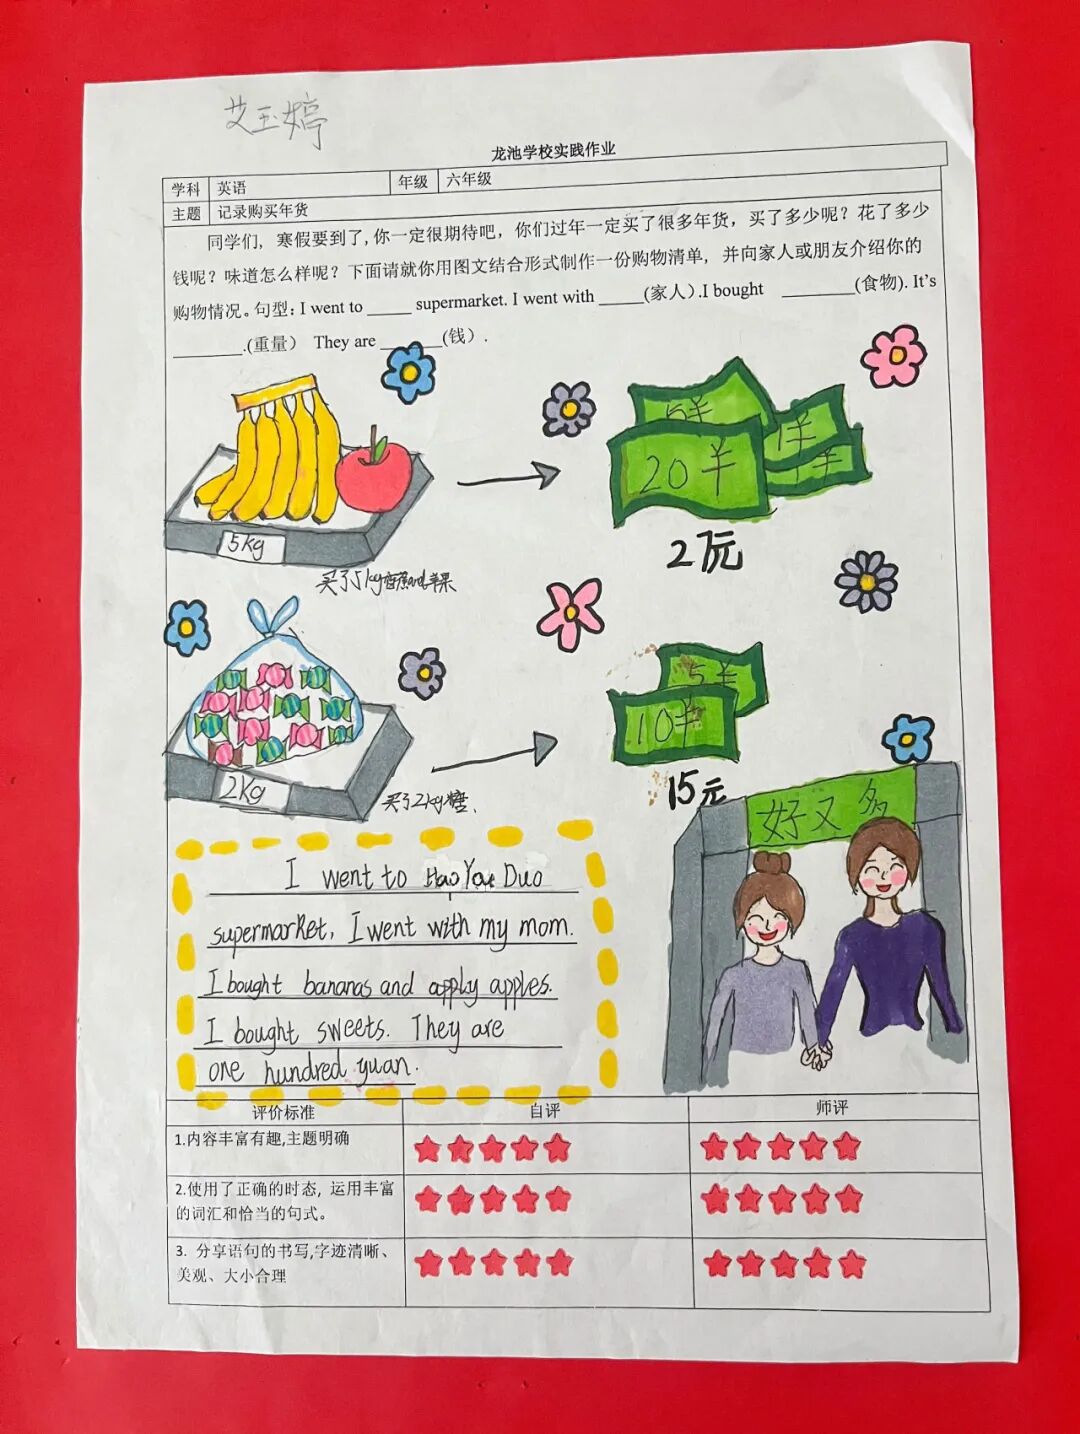 艾玉婷
龙池学校实践作业
学科 英语 年级 六年级
主题 记录购买年货
同学们, 寒假要到了,你一定很期待吧, 你们过年一定买了很多年货, 买了多少呢? 花了多少
钱呢? 味道怎么样呢? 下面请就你用图文结合形式制作一份购物清单, 并向家人或朋友介绍你的
购物情况。句型: I went to _____ supermarket. I went with _____(家人).I bought ________(食物). It's
________.(重量) They are _______(钱).
5羊
20羊
1羊
羊
5kg
2元
买了5kg香蕉and苹果
5羊
10羊
2kg
15元
买了2kg糖.
好又多
I went to Hao You Duo
supermarket, I went with my mom.
I bought bananas and apply apples.
I bought sweets. They are
one hundred yuan.
评价标准 自评 师评
1.内容丰富有趣,主题明确
2.使用了正确的时态, 运用丰富
的词汇和恰当的句式。
3. 分享语句的书写,字迹清晰、
美观、大小合理